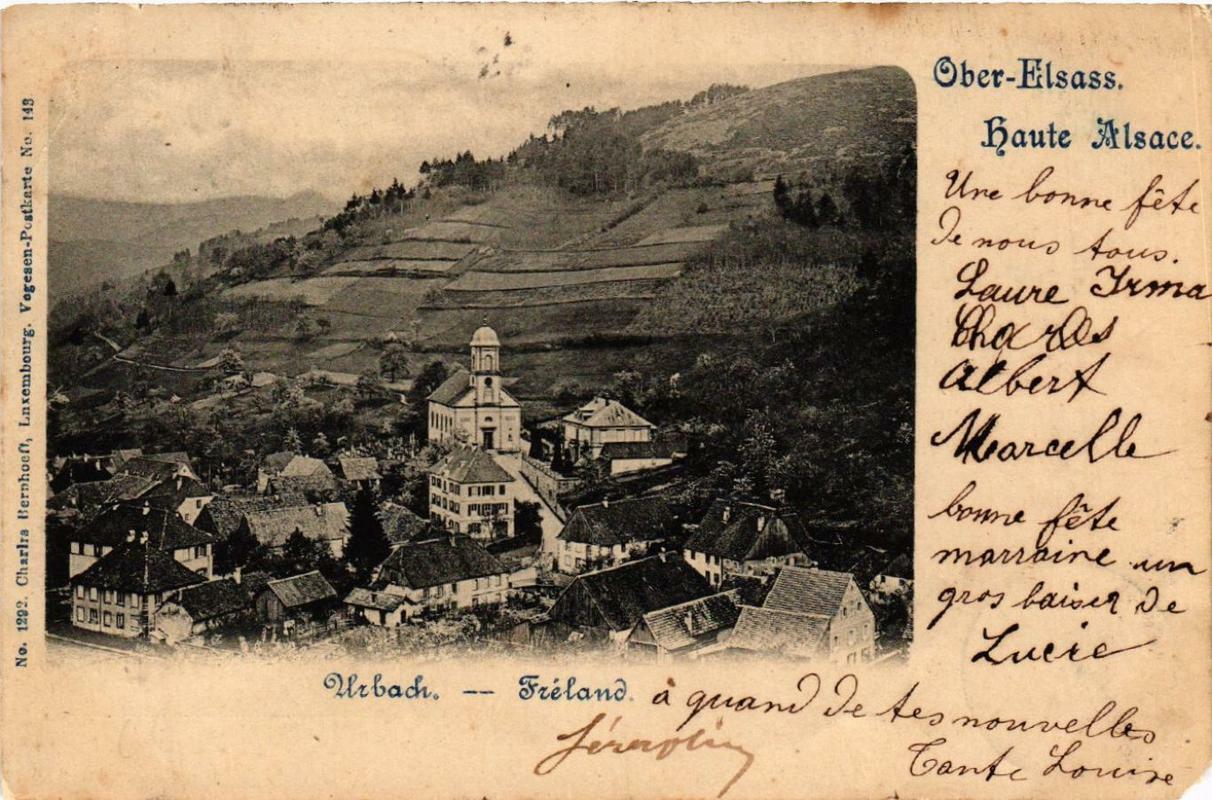 Ober-Elsass.
Haute Alsace.
Une bonne fête
De nous tous.
Laure Irma
Charles
Albert
Marcelle
bonne fête
marraine un
gros baiser de
Lucie
No. 1292. Charles Bernhoeft, Luxembourg. Vogesen-Postkarte No. 143
Urbach. — Fréland.
à quand de tes nouvelles
Tante Louise